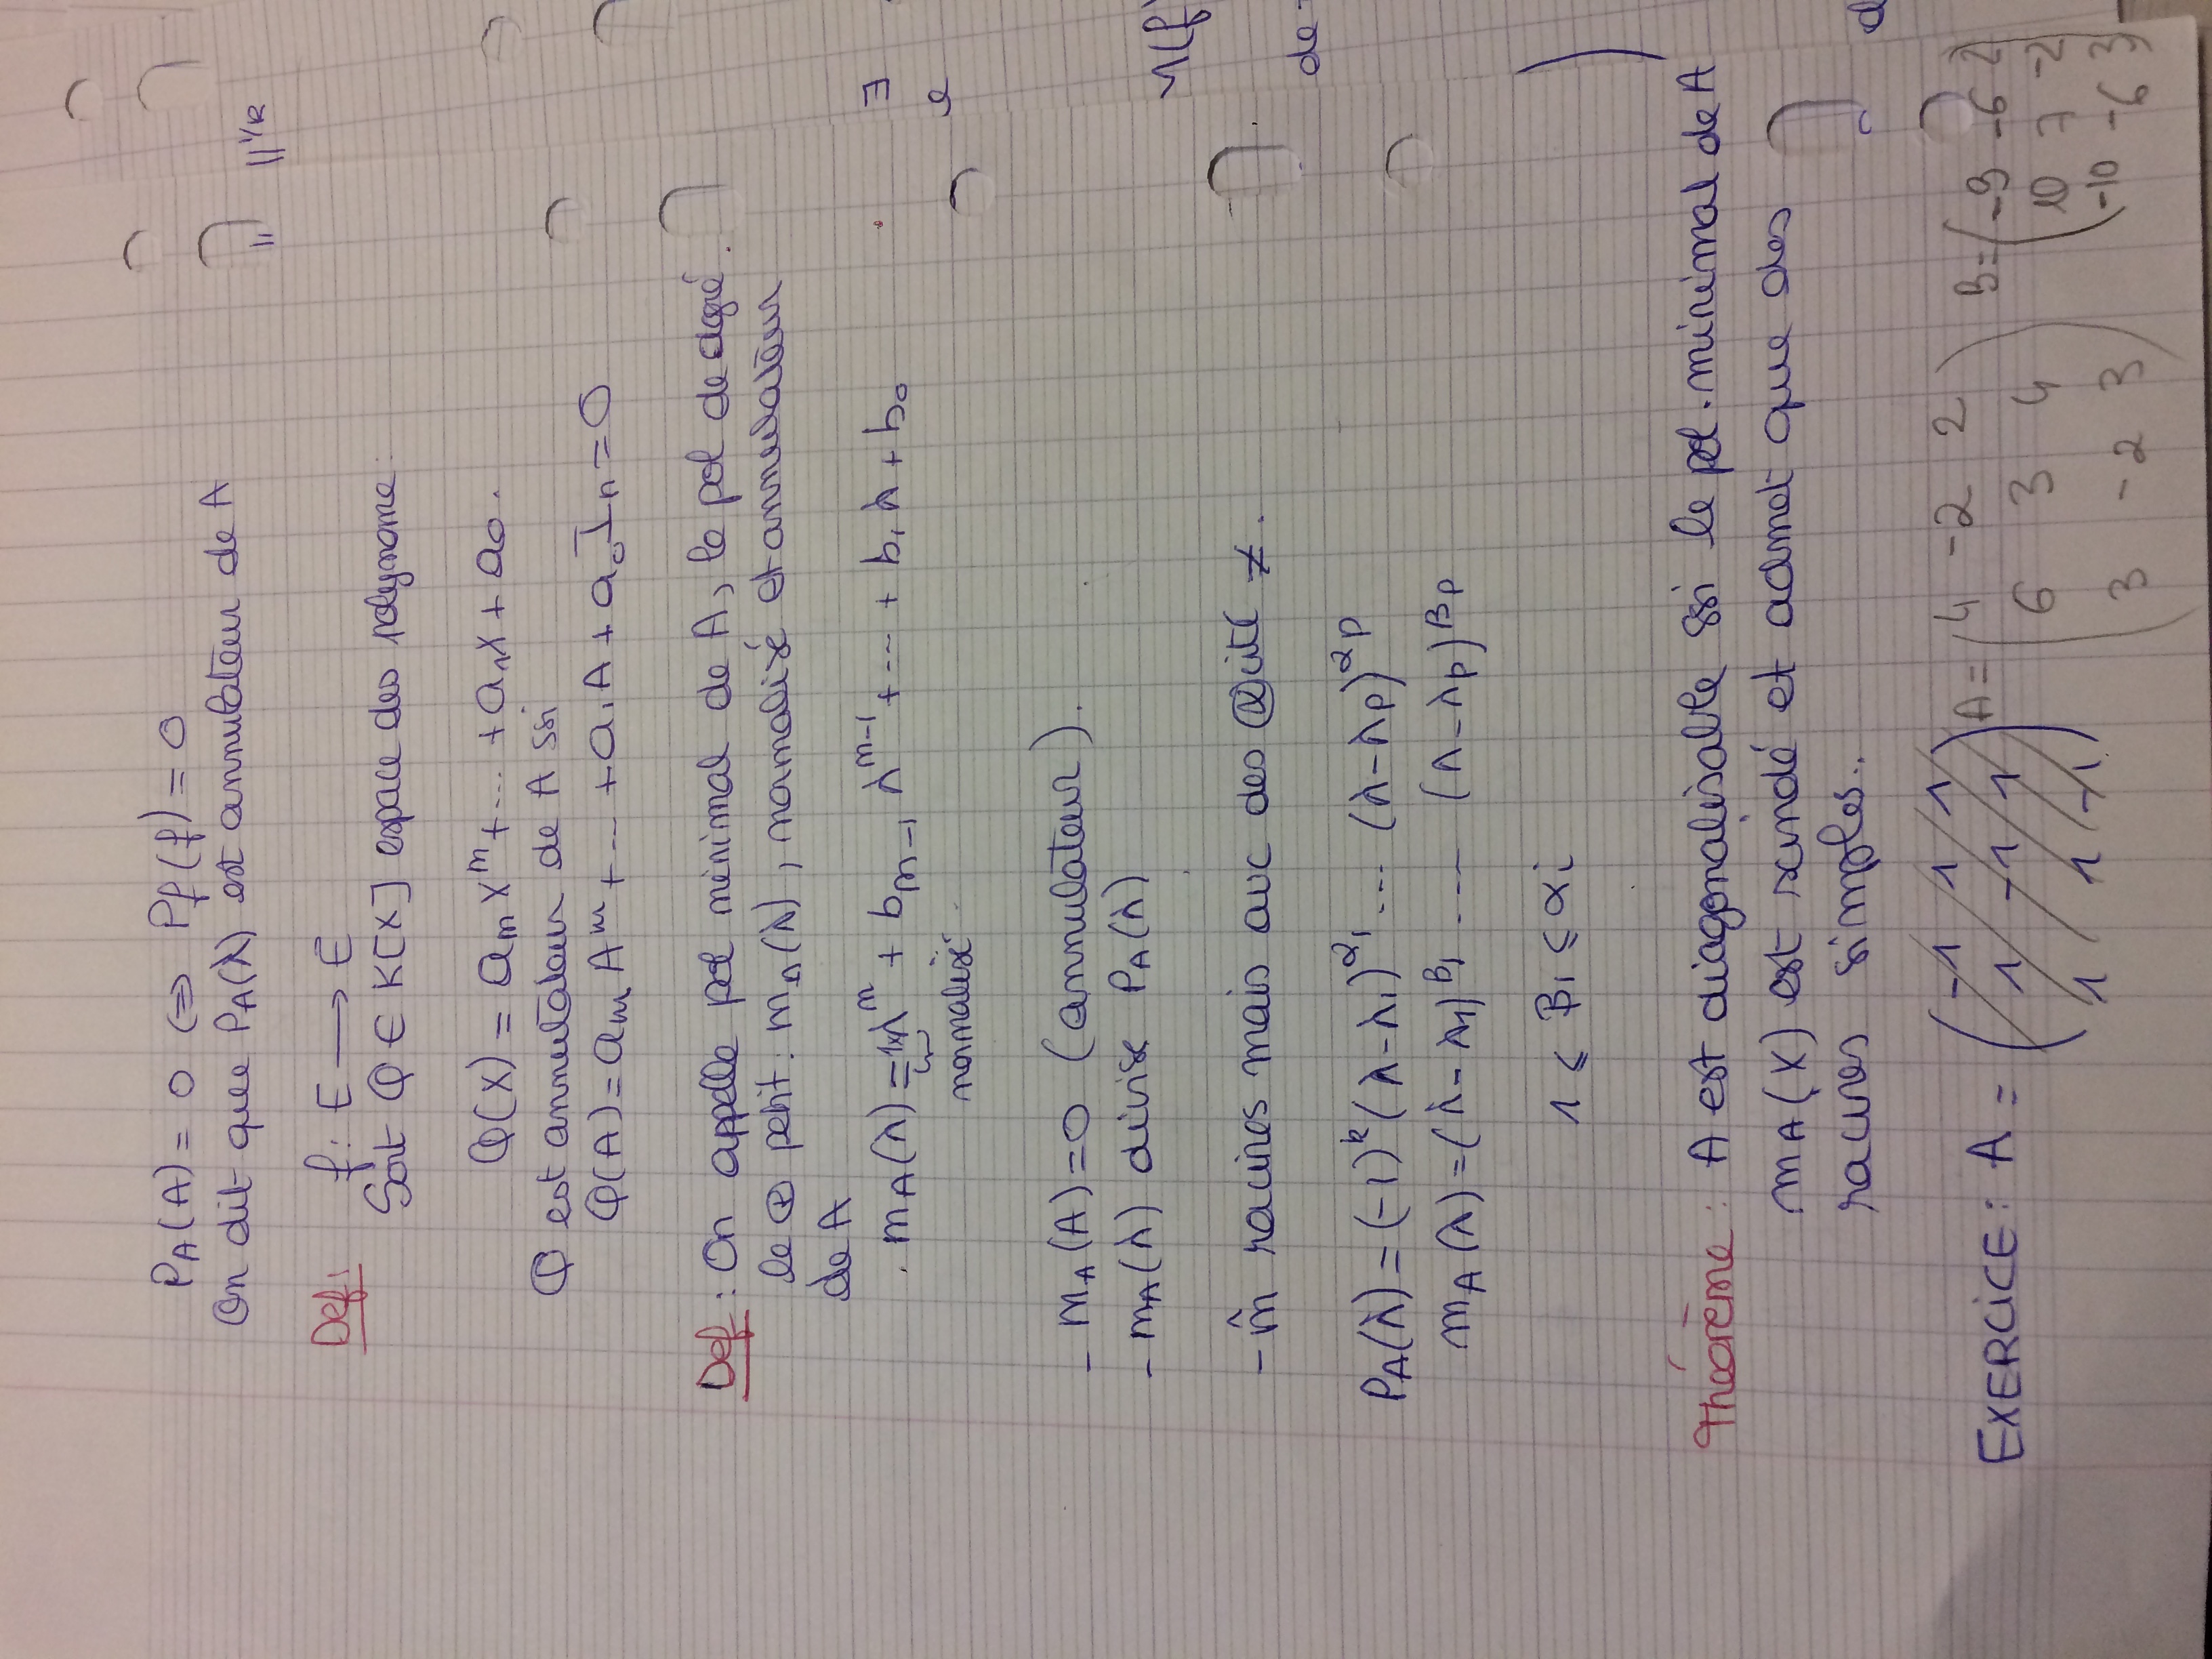 P_A(A) = 0 ⇔ P_f(f) = 0
On dit que P_A(λ) est annulateur de A
Def: f: E → E
Soit Q ∈ K[X] espace des polynome:
Q(X) = a_m X^m + ... + a_1 X + a_0.
Q est annulateur de A ssi
Q(A) = a_m A^m + ... + a_1 A + a_0 I_n = 0
Def: On appelle pol minimal de A, le pol de degré
le ⊕ petit: m_A(λ), normalisé et annulateur
de A
m_A(λ) = 1×λ^m + b_{m-1} λ^{m-1} + ... + b_1 λ + b_0
normalisé
- m_A(A) = 0 (annulateur).
- m_A(λ) divise P_A(λ)
- m̂ racines mais avc des ⊗cité ≠.
P_A(λ) = (-1)^k (λ-λ_1)^{α_1} ... (λ-λ_p)^{α_p}
m_A(λ) = (λ-λ_1)^{β_1} ... (λ-λ_p)^{β_p}
1 ⩽ β_i ⩽ α_i
Théorème: A est diagonalisable ssi le pol. minimal de A
m_A(X) est scindé et admet que des
racines simples.
EXERCICE: A = A = B =
-1 1 1 4 -2 2 -9 -6 2
1 -1 1 6 3 4 10 7 -2
1 1 -1 3 -2 3 -10 -6 3